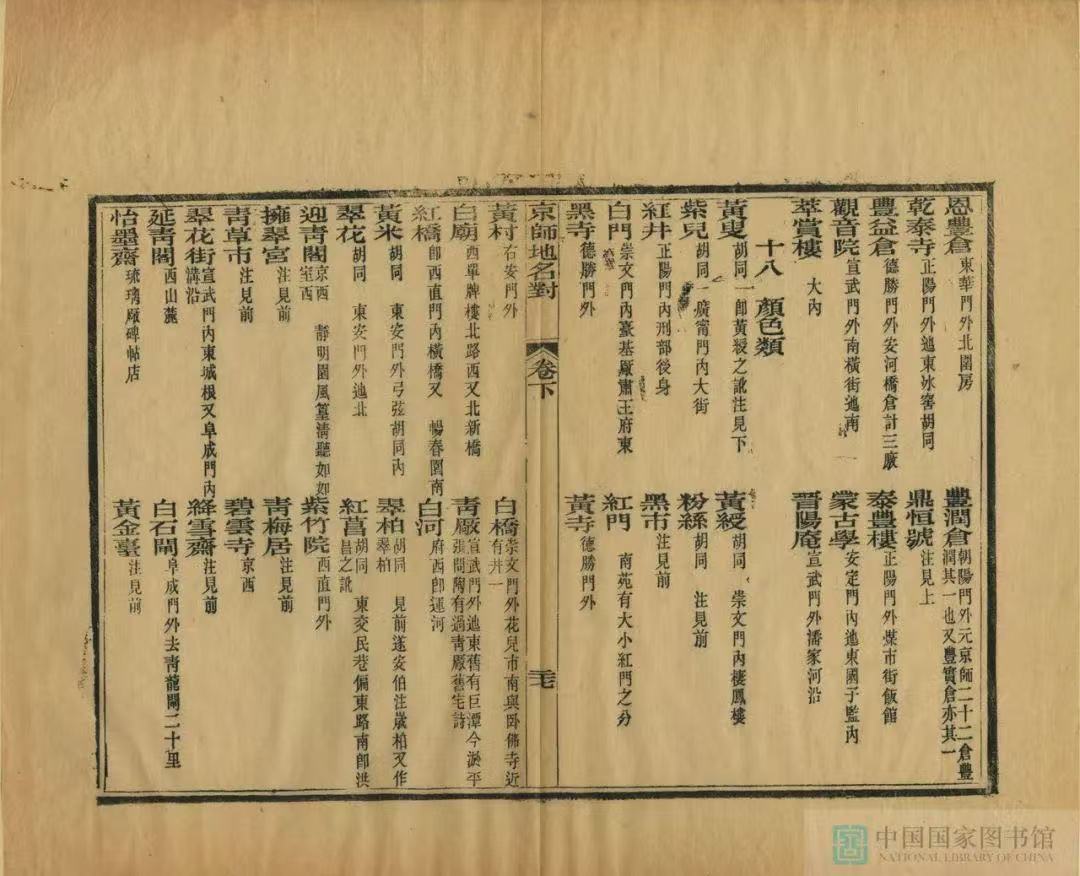 恩豐倉 東華門外北園房 豐潤倉 朝陽門外元京師二十二倉豐潤其一也又豐實倉亦其一
乾泰寺 正陽門外迤東冰窖胡同 鼎恒號 注見上
豐益倉 德勝門外安河橋倉計三廒 泰豐樓 正陽門外煤市街飯館
觀音院 宣武門外南橫街迤南 蒙古學 安定門內迤東國子監內
萃賞樓 大內 晋陽庵 宣武門外潘家河沿
十八 顏色類
黃叟 胡同一卽黃綬之訛注見下 黃綬 胡同 崇文門內棲鳳樓
紫兒 胡同一廣甯門內大街 粉絲 胡同 注見前
紅井 正陽門內刑部後身 黑市 注見前
白門 崇文門內臺基厰肅王府東 紅門 南苑有大小紅門之分
黑寺 德勝門外 黃寺 德勝門外
京師地名對 卷下 卄七
黃村 右安門外 白橋 崇文門外花兒市南與卧佛寺近有井一
白廟 西單牌樓北路西又北新橋 靑厰 宣武門外迤東舊有巨潭今淤平張問陶有過靑厰舊宅詩
紅橋 卽西直門內橫橋又 暢春園南 白河 府西卽運河
黃米 胡同 東安門外弓弦胡同內 翠柏 胡同 見前遂安伯注歲柏又作翠柏
翠花 胡同 東安門外迤北 紅菖 胡同 東交民巷偏東路南卽洪昌之訛
迎靑閣 京西 靜明園風篁淸聽如如室西 紫竹院 西直門外
擁翠宮 注見前 靑梅居 注見前
靑草市 注見前 碧雲寺 京西
翠花街 宣武門內東城根又阜成門內溝沿 絳雪齋 注見前
延靑閣 西山麓 白石閘 阜成門外去靑龍閘二十里
怡墨齋 琉璃厰碑帖店 黃金臺 注見前
中国国家图书馆
NATIONAL LIBRARY OF CHINA